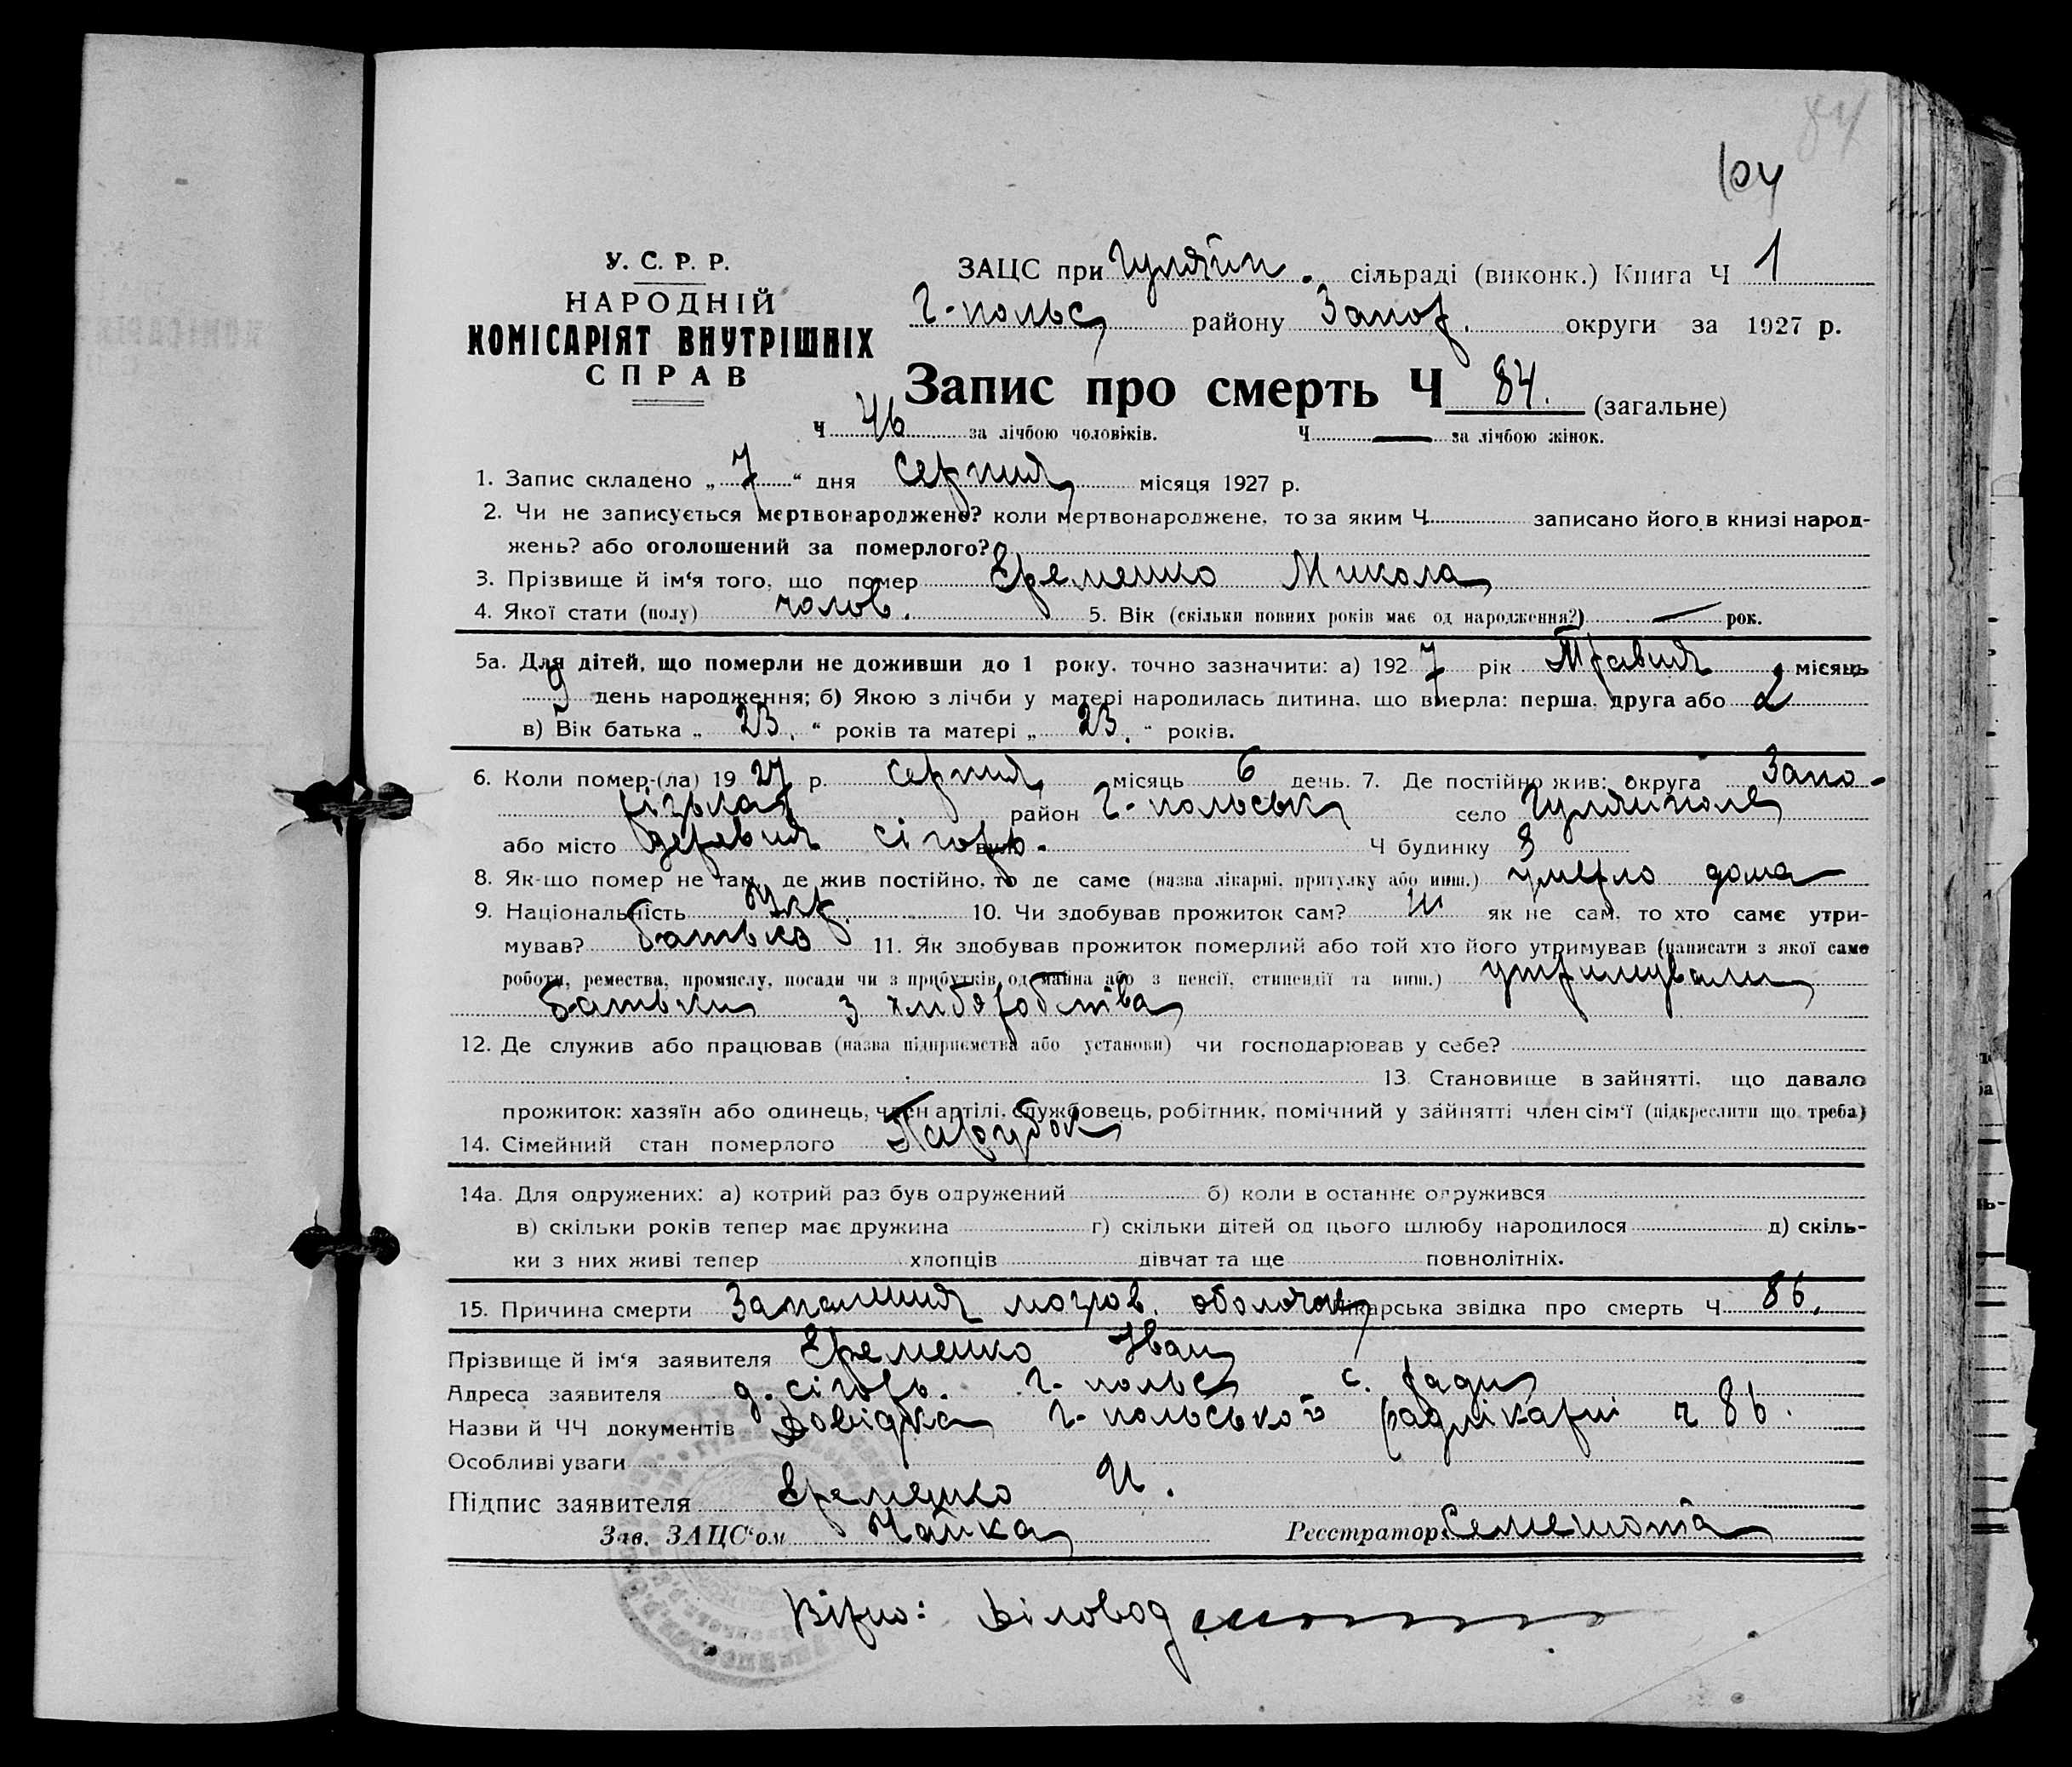 84
104
У. С. Р. Р.
НАРОДНІЙ
КОМІСАРІЯТ ВНУТРІШНІХ
СПРАВ
ЗАЦС при Гуляйп. сільраді (виконк.) Книга Ч 1
Г-польс району Запор. округи за 1927 р.
Запис про смерть Ч 84. (загальне)
Ч 46 за лічбою чоловіків. Ч — за лічбою жінок.
1. Запис складено „ 7 “ дня серпня місяця 1927 р.
2. Чи не записується мертвонароджене? коли мертвонароджене, то за яким Ч записано його в книзі народ-
жень? або оголошений за померлого?
3. Прізвище й ім‘я того, що помер Єременко Микола
4. Якої стати (полу) чолов. 5. Вік (скільки повних років має од народження?) — рок.
5а. Для дітей, що померли не доживши до 1 року, точно зазначити: а) 192 7 рік Травня місяць
9 день народження; б) Якою з лічби у матері народилась дитина, що вмерла: перша, друга або 2
в) Вік батька „ 23. “ років та матері „ 23. “ років.
6. Коли помер-(ла) 19 27 р. серпня місяць 6 день. 7. Де постійно жив: округа Запо-
різька район Г-польськ село Гуляйполе
або місто деревня Ч будинку 3
8. Як-що помер не там, де жив постійно, то де саме (назва лікарні, притулку або инш.) умерло дома
9. Національність Укр. 10. Чи здобував прожиток сам? Ні як не сам, то хто саме утри-
мував? батько 11. Як здобував прожиток померлий або той хто його утримував (написати з якої саме
роботи, ремества, промислу, посади чи з прибутків од майна або з пенсії, стипендії та инш.) утримували
батьки з хлиборобства
12. Де служив або працював (назва підприємства або установи) чи господарював у себе?
13. Становище в зайнятті, що давало
прожиток: хазяїн або одинець, член артілі, службовець, робітник, помічний у зайнятті член сім‘ї (підкреслити що треба)
14. Сімейний стан померлого Парубок
14а. Для одружених: а) котрий раз був одружений б) коли в останнє одружився
в) скільки років тепер має дружина г) скільки дітей од цього шлюбу народилося д) скіль-
ки з них живі тепер хлопців дівчат та ще повнолітніх.
15. Причина смерти Запалення мозров. оболочок Лікарська звідка про смерть Ч 86.
Прізвище й ім‘я заявителя Єременко Іван
Адреса заявителя Г-польс с. ради
Назви й ЧЧ документів Довідка Г-польської радлікарні ч 86.
Особливі уваги
Підпис заявителя Єременко И.
Зав. ЗАЦС‘ом Чайка Реєстратор Семенота
Вірно: Біловод